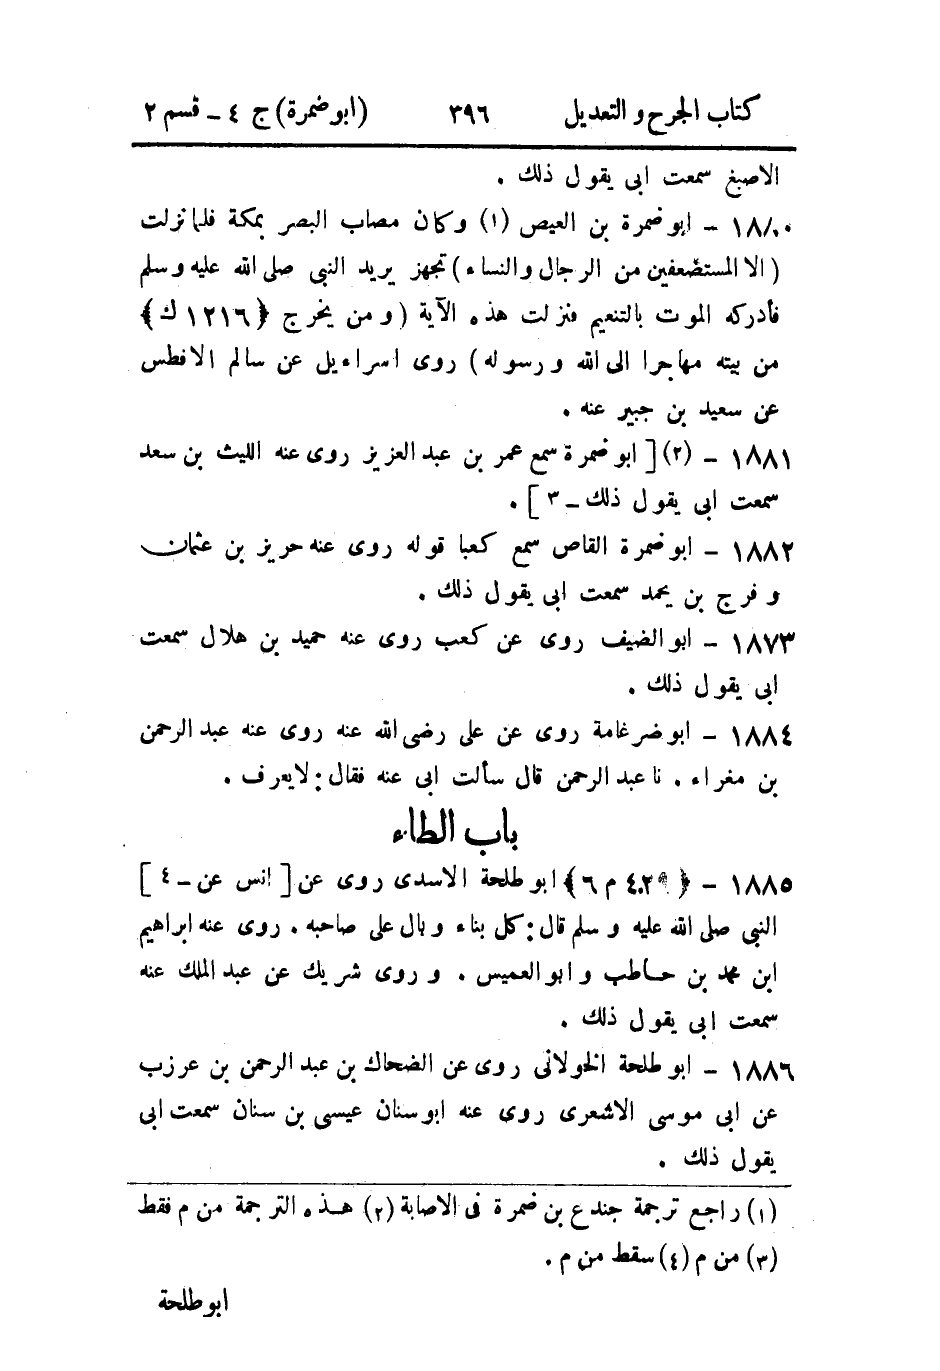 كتاب الجرح والتعديل ٣٩٦ (ابو ضمرة) ج ٤ - قسم ٢
الاصبغ سمعت ابى يقول ذلك .
١٨٨٠ - ابو ضمرة بن العيص (١) وكان مصاب البصر بمكة فلما نزلت
(الا المستضعفين من الرجال والنساء) تجهز يريد النبى صلى الله عليه وسلم
فأدركه الموت بالتنعيم فنزلت هذه الآية (ومن يخرج ﴿١٢١٦ ك﴾
من بيته مهاجرا الى الله ورسوله) روى اسراءيل عن سالم الافطس
عن سعيد بن جبير عنه .
١٨٨١ - (٢) [ ابو ضمرة سمع عمر بن عبد العزيز روى عنه الليث بن سعد
سمعت ابى يقول ذلك - ٣ ] .
١٨٨٢ - ابو ضمرة القاص سمع كعبا قوله روى عنه حريز بن عثمان
و فرج بن يحمد سمعت ابى يقول ذلك .
١٨٧٣ - ابو الضيف روى عن كعب روى عنه حميد بن هلال سمعت
ابى يقول ذلك .
١٨٨٤ - ابو ضرغامة روى عن على رضى الله عنه روى عنه عبد الرحمن
بن مغراء . نا عبد الرحمن قال سألت ابى عنه فقال: لا يعرف .
باب الطاء
١٨٨٥ - ﴿٤٠٢٩ م ٦﴾ ابو طلحة الاسدى روى عن [ انس عن - ٤ ]
النبى صلى الله عليه وسلم قال: كل بناء وبال على صاحبه . روى عنه ابراهيم
ابن محمد بن حاطب و ابو العميس . و روى شريك عن عبد الملك عنه
سمعت ابى يقول ذلك .
١٨٨٦ - ابو طلحة الخولانى روى عن الضحاك بن عبد الرحمن بن عرزب
عن ابى موسى الاشعرى روى عنه ابو سنان عيسى بن سنان سمعت ابى
يقول ذلك .
(١) راجع ترجمة جندع بن ضمرة فى الاصابة (٢) هذه الترجمة من م فقط
(٣) من م (٤) سقط من م .
ابو طلحة